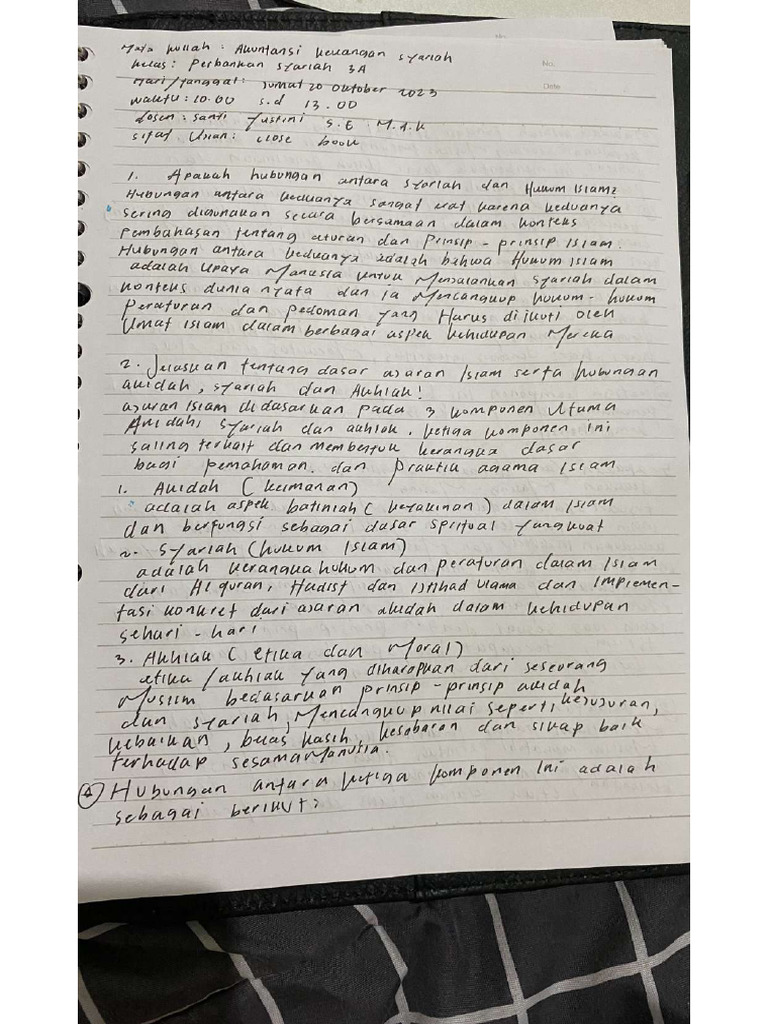 No.
Date
Mata kuliah : Akuntansi keuangan syariah
kelas : Perbankan syariah 3A
Hari/tanggal : Jumat 20 Oktober 2023
waktu : 10.00 s.d 13.00
dosen : Santi Yustini S.E. M.A.k
sifat Ujian : close book
1. Apakah hubungan antara syariah dan Hukum Islam?
Hubungan antara keduanya sangat erat karena keduanya
sering digunakan secara bersamaan dalam konteks
pembahasan tentang aturan dan Prinsip - prinsip Islam.
Hubungan antara keduanya adalah bahwa Hukum Islam
adalah upaya Manusia untuk Menjalankan syariah dalam
konteks dunia nyata dan ia Mencangkup hukum - hukum
Peraturan dan pedoman yang Harus diikuti oleh
Umat Islam dalam berbagai aspek kehidupan Mereka
2. Jelaskan tentang dasar ajaran Islam serta hubungan
akidah, syariah dan Akhlak!
ajaran Islam didasarkan pada 3 komponen Utama
Akidah, syariah dan akhlak. ketiga komponen ini
saling terkait dan membentuk kerangka dasar
bagi pemahaman. dan praktik agama Islam
1. Akidah (keimanan)
adalah aspek batiniah (keyakinan) dalam Islam
dan berfungsi sebagai dasar spritual yang kuat
2. Syariah (hukum Islam)
adalah kerangka hukum dan peraturan dalam Islam
dari Al quran, Hadist dan ijtihad ulama dan Implemen-
tasi konkret dari ajaran akidah dalam kehidupan
sehari - hari
3. Akhlak (etika dan Moral)
etika / akhlak yang diharapkan dari seseorang
Muslim bedasarkan prinsip - prinsip akidah
dan syariah, Mencangkup nilai seperti kejujuran,
kebaikan, belas kasih, kesabaran dan sikap baik
terhadap sesama Manusia.
Hubungan antara ketiga komponen ini adalah
sebagai berikut :